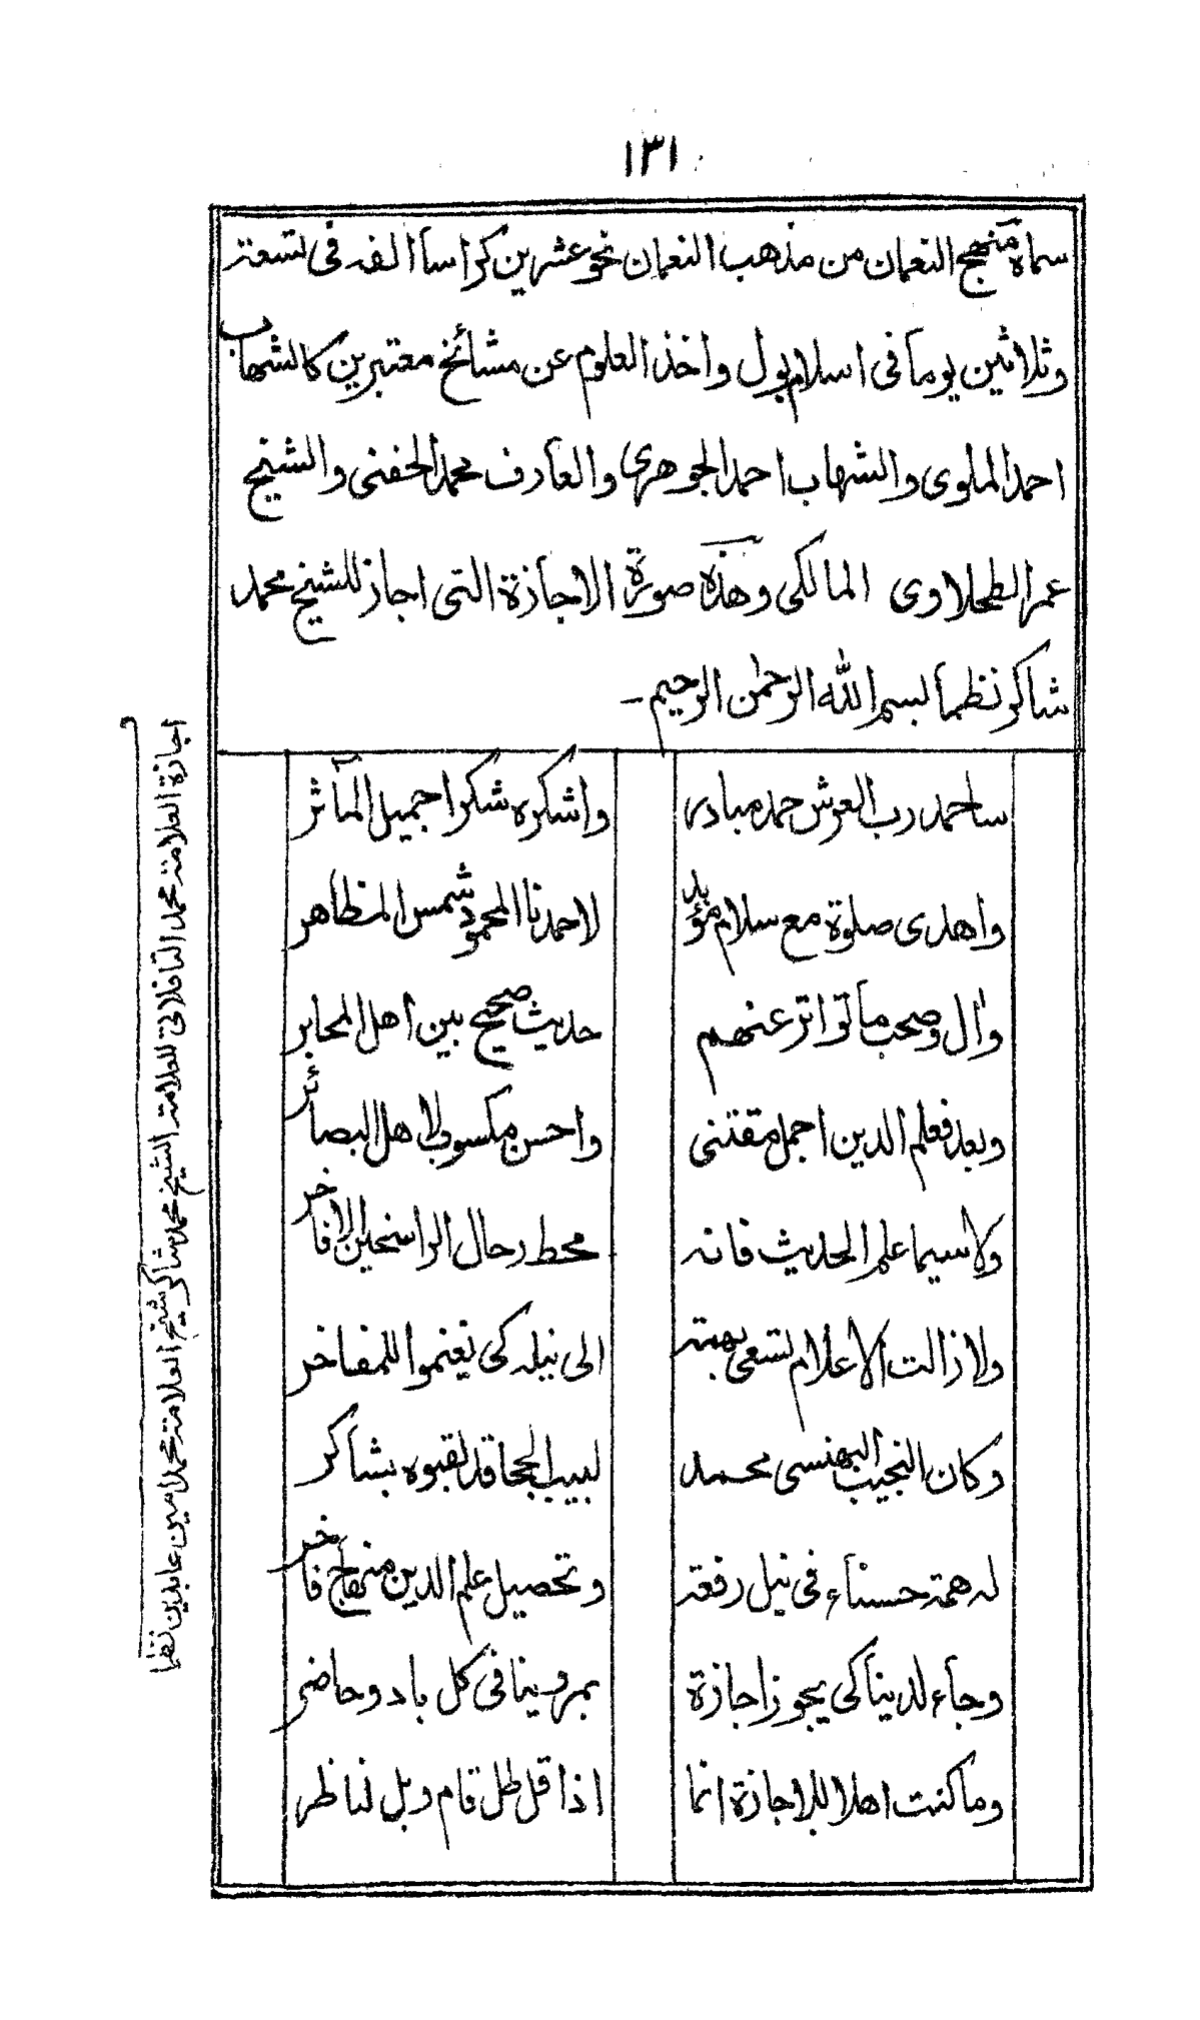 ١٣١
سماه منهج النعمان من مذهب النعمان نحو عشرين كراسا الفه فى تسعة
وثلاثين يوما فى اسلامبول واخذ العلوم عن مشائخ معتبرين كالشهاب
احمد الملوى والشهاب احمد الجوهرى والعارف محمد الحفنى والشيخ
عمر الطحلاوى المالكى وهذه صورة الاجازة التى اجاز للشيخ محمد
شاكر نظما بسم الله الرحمن الرحيم ـ
ساحمد رب العرش حمد مبادر واشكره شكرا جميل المآثر
واهدى صلوة مع سلام مؤبد لاحمدنا المحمود شمس المظاهر
وآل وصحب ما تواتر عنهم حديث صحيح بين اهل المحابر
وبعد فعلم الدين اجمل مقتنى واحسن مكسوب لاهل البصائر
ولا سيما علم الحديث فانه محط رحال الراسخين الافاخر
ولا زالت الاعلام تسعى بهمة الى نيله كى يغنموا للمفاخر
وكان النجيب البهنسى محمد لبيب الحجا قد لقبوه بشاكر
له همة حسناء فى نيل رفعة وتحصيل علم الدين منهاج فاخر
وجاء لدينا كى يجوز اجازة بمروينا فى كل باد وحاضر
وما كنت اهلا للاجازة انما اذا قل طل قام وبل لناظر
اجازة العلامة محمد التافلاتى للعلامة الشيخ محمد شاكر شيخ العلامة محمد امين عابدين نظما